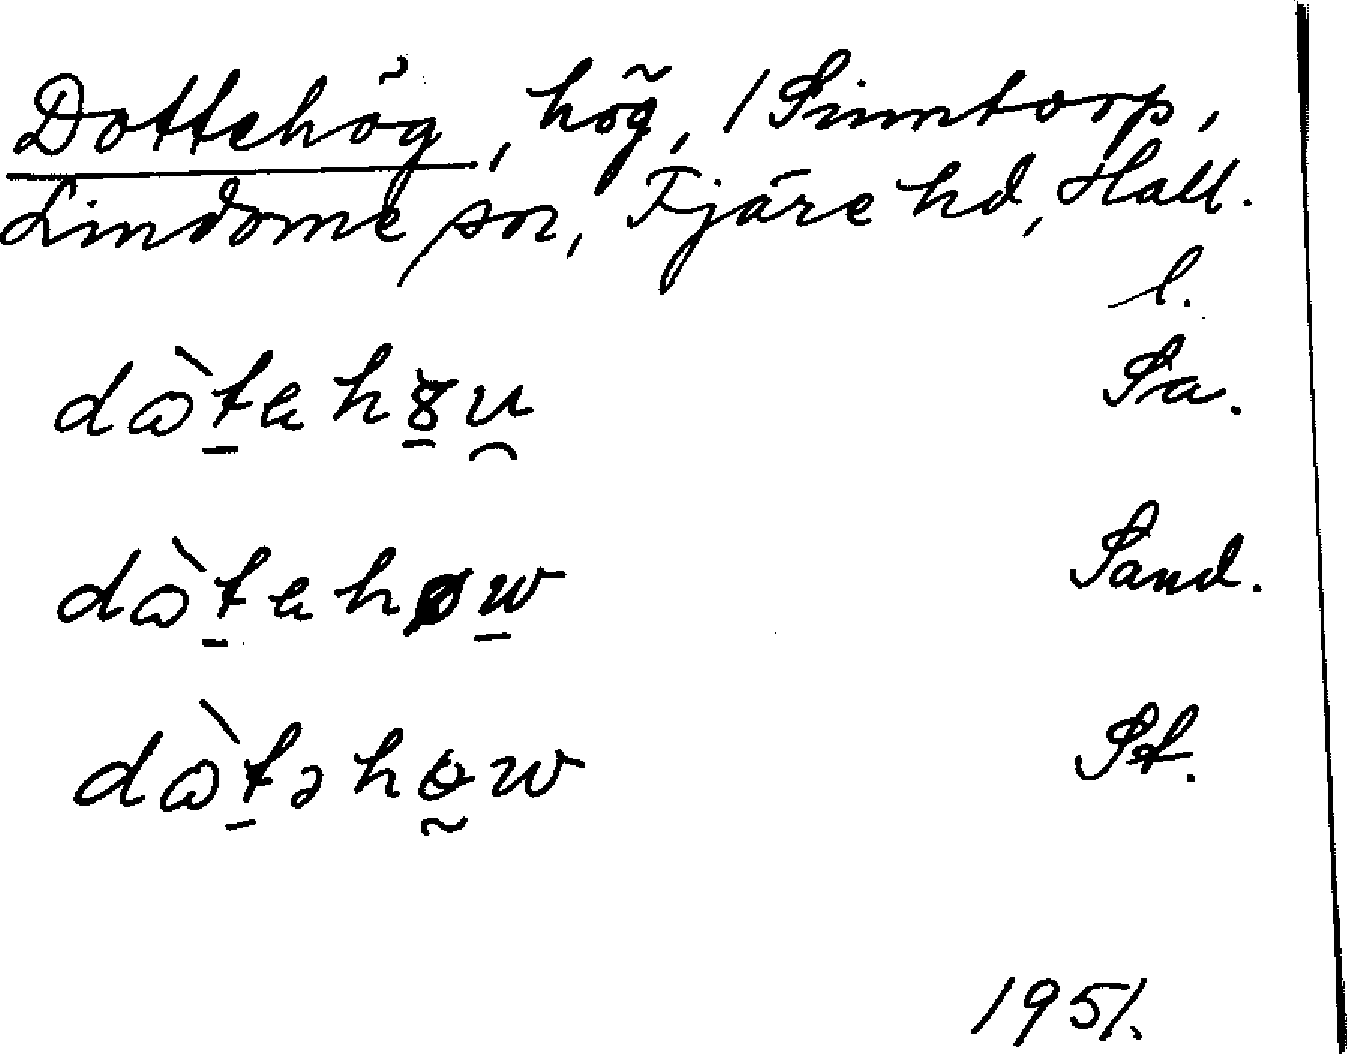 Dottehög, hög, / Sinntorp,
Lindome sn, Fjäre hd, Hall.
l.
dòtehöu Sa.
dòtehøw Sand.
dòtəhɵw St.
1951.